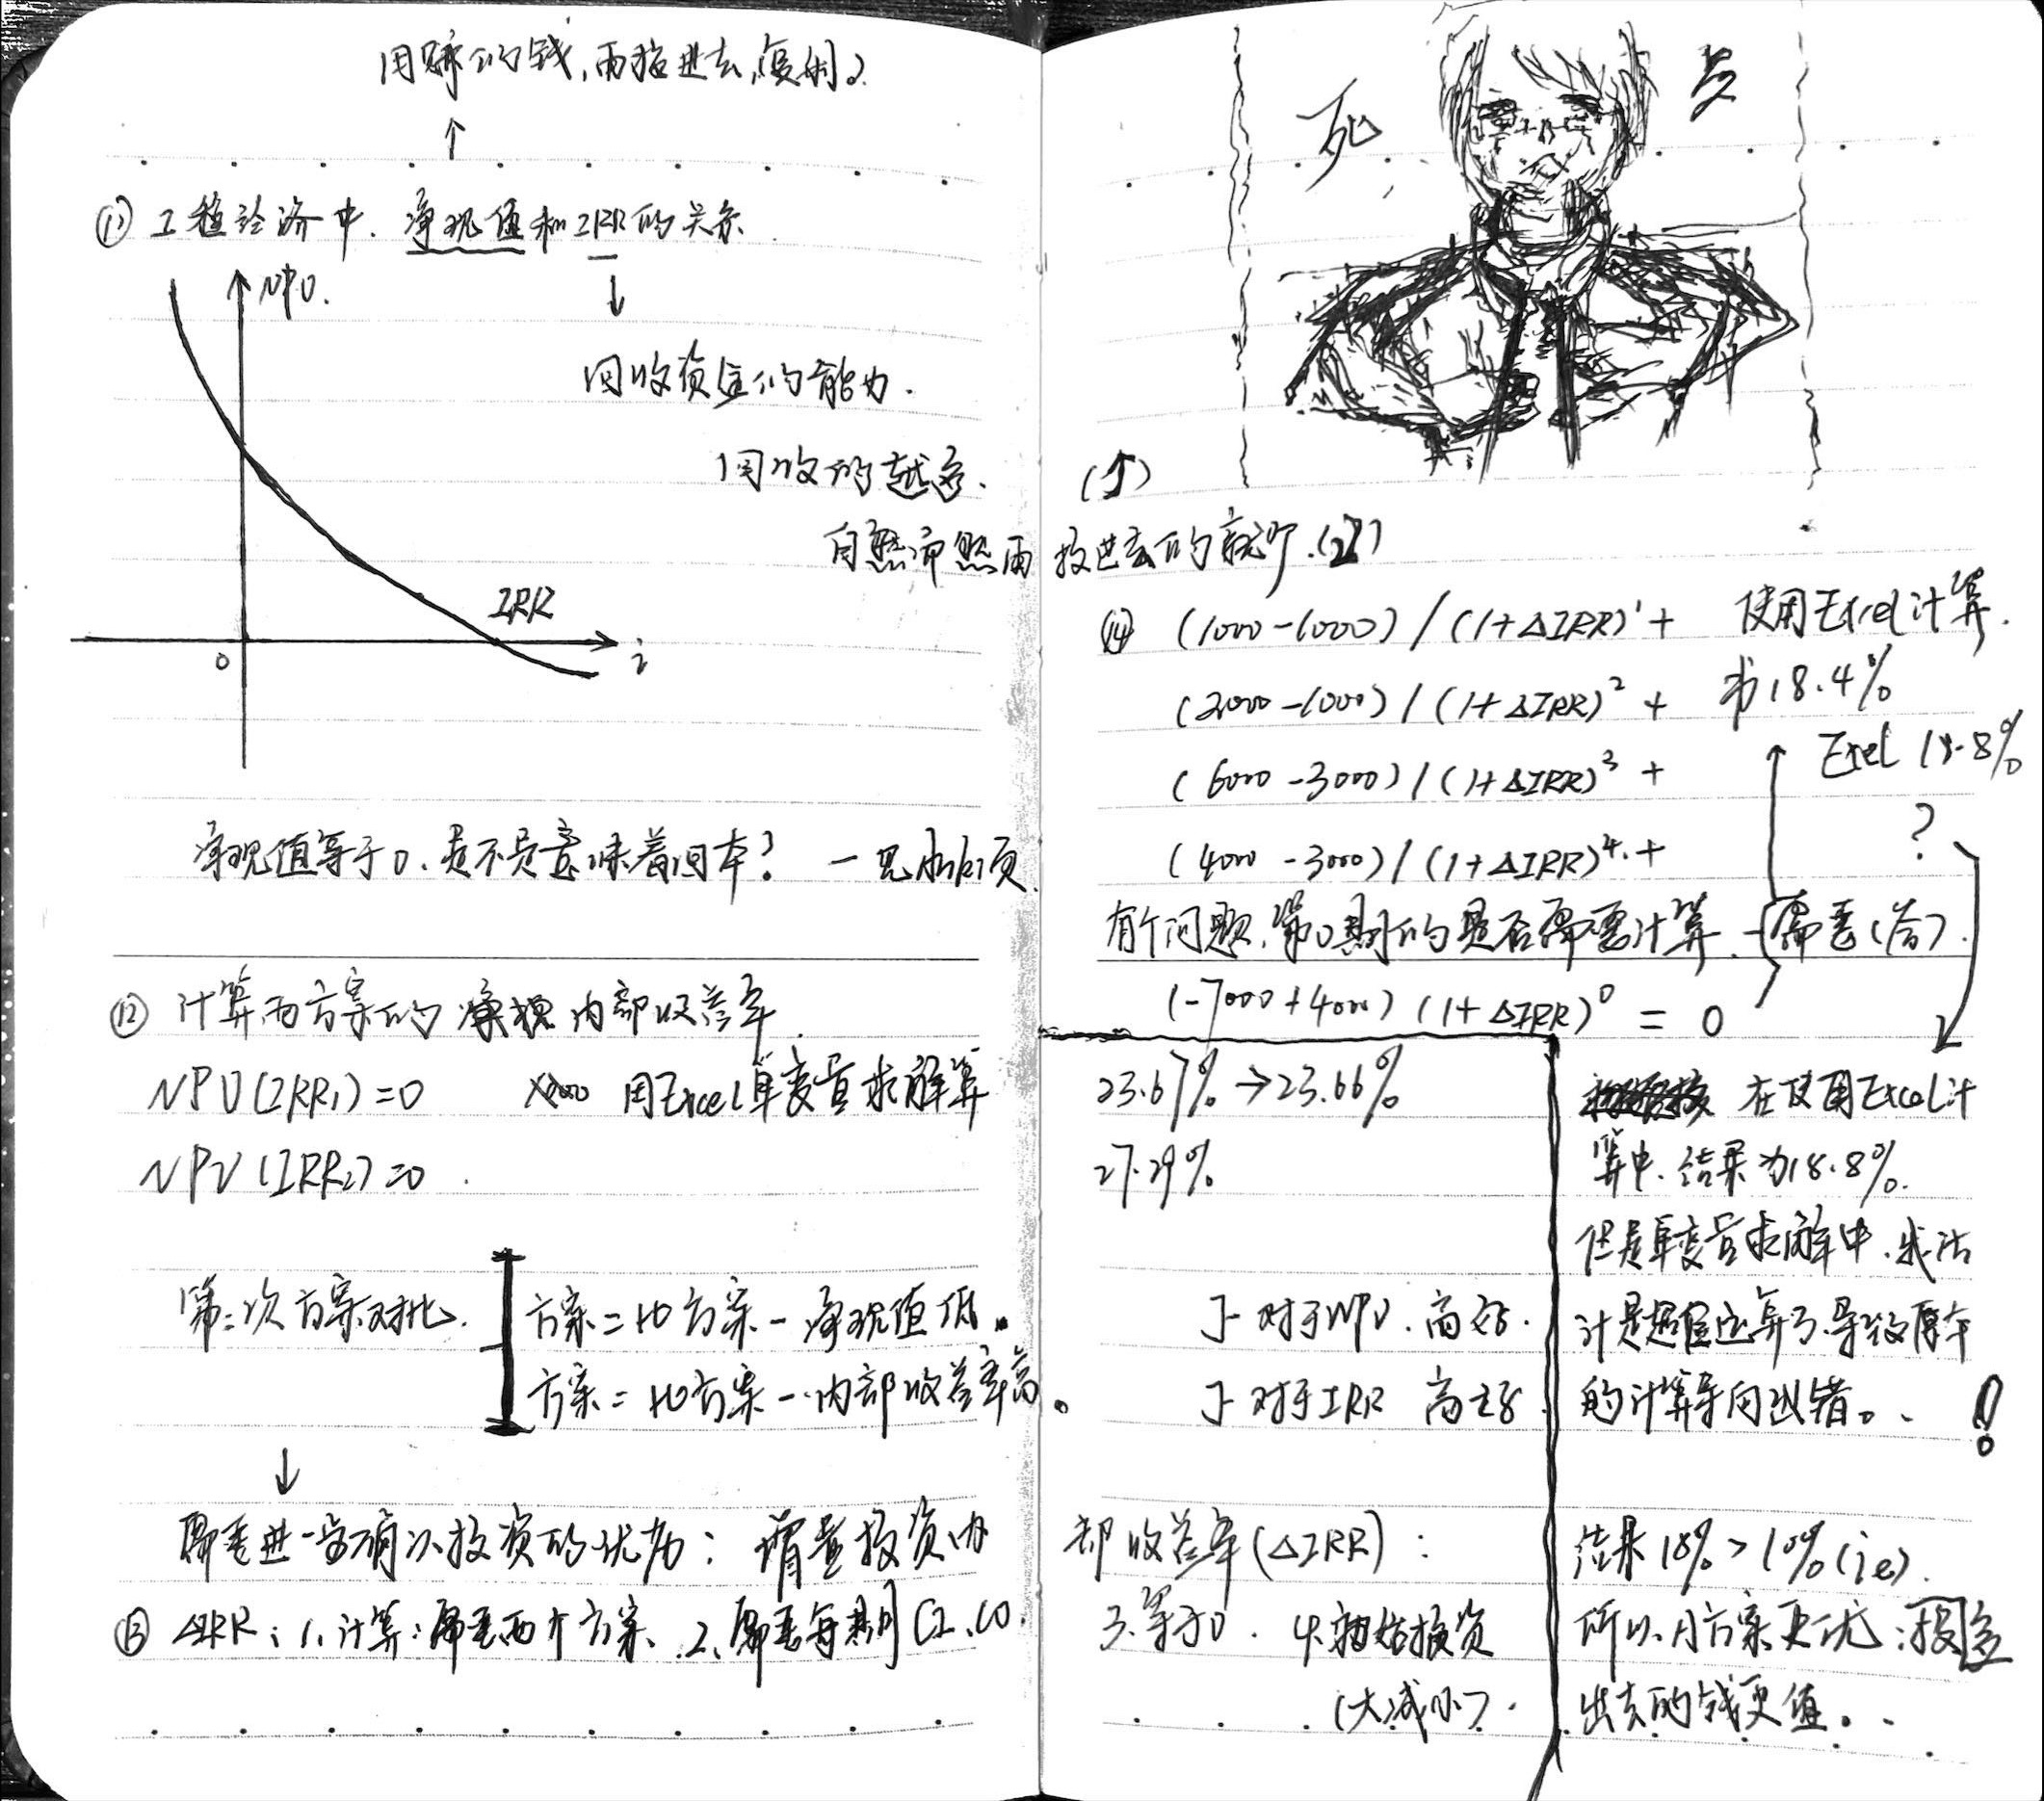 用赚的钱,再投进去,复利。
↑
⑪ 工程经济中.净现值和IRR的关系.
NPV.
↓
回收资金的能力.
回收的越多.
自然而然再
IRR
0
i
净现值等于0.是不是意味着回本? 一见
⑫ 计算两方案的 内部收益率.
NPV(IRR₁)=0 用Excel单变量求解算
NPV(IRR₂)=0.
第二次方案对比.
方案二比方案一净现值低.
方案二比方案一内部收益率高。
↓
需要进一步确认投资的优劣:增量投资内
⑬ ΔIRR:1.计算:需要两个方案、2.需要每期CI、CO.
死
(↑)
投进去的就多.(进)
⑭ (1000-1000)/(1+ΔIRR)¹+ 使用Excel计算.
(2000-1000)/(1+ΔIRR)²+ 书18.4%
(6000-3000)/(1+ΔIRR)³+ Exel 18.8%
(4000-3000)/(1+ΔIRR)⁴+ ?
有个问题,第0期的是否需要计算.-需要(答).
(-7000+4000)(1+ΔIRR)⁰=0
23.67%→23.66%
27.29%
→对于NPV.高好.
→对于IRR 高好.
部收益率(ΔIRR):
3.等于0. 4.初始投资
(大减小).
在使用Excel计
算中.结果为18.8%.
但是单变量求解中.我估
计是超值运算了.导致原本
的计算导向出错。. !
结果18%>10%(ie).
所以.A方案更优:投资
出去的钱更值。.